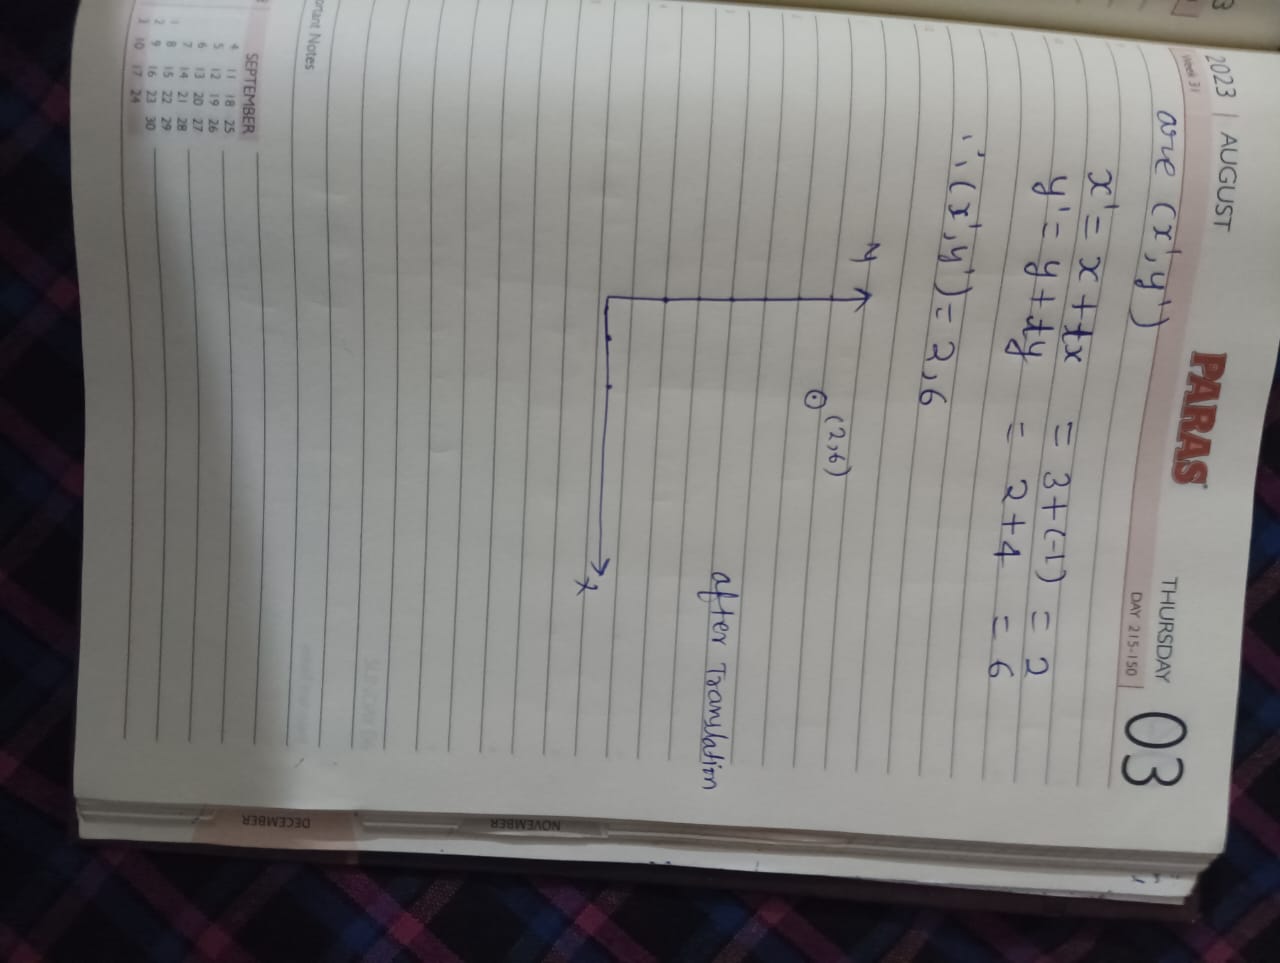 2023 | AUGUST
Week 31
PARAS
THURSDAY 03
DAY 215-150
are (x', y')
x' = x + tx = 3+(-1) = 2
y' = y + ty = 2+4 = 6
∴ (x', y') = 2, 6
y
(2,6)
after Translation
x
NOVEMBER
DECEMBER
Notes
SEPTEMBER
4 11 18 25
5 12 19 26
6 13 20 27
7 14 21 28
1 8 15 22 29
2 9 16 23 30
3 10 17 24